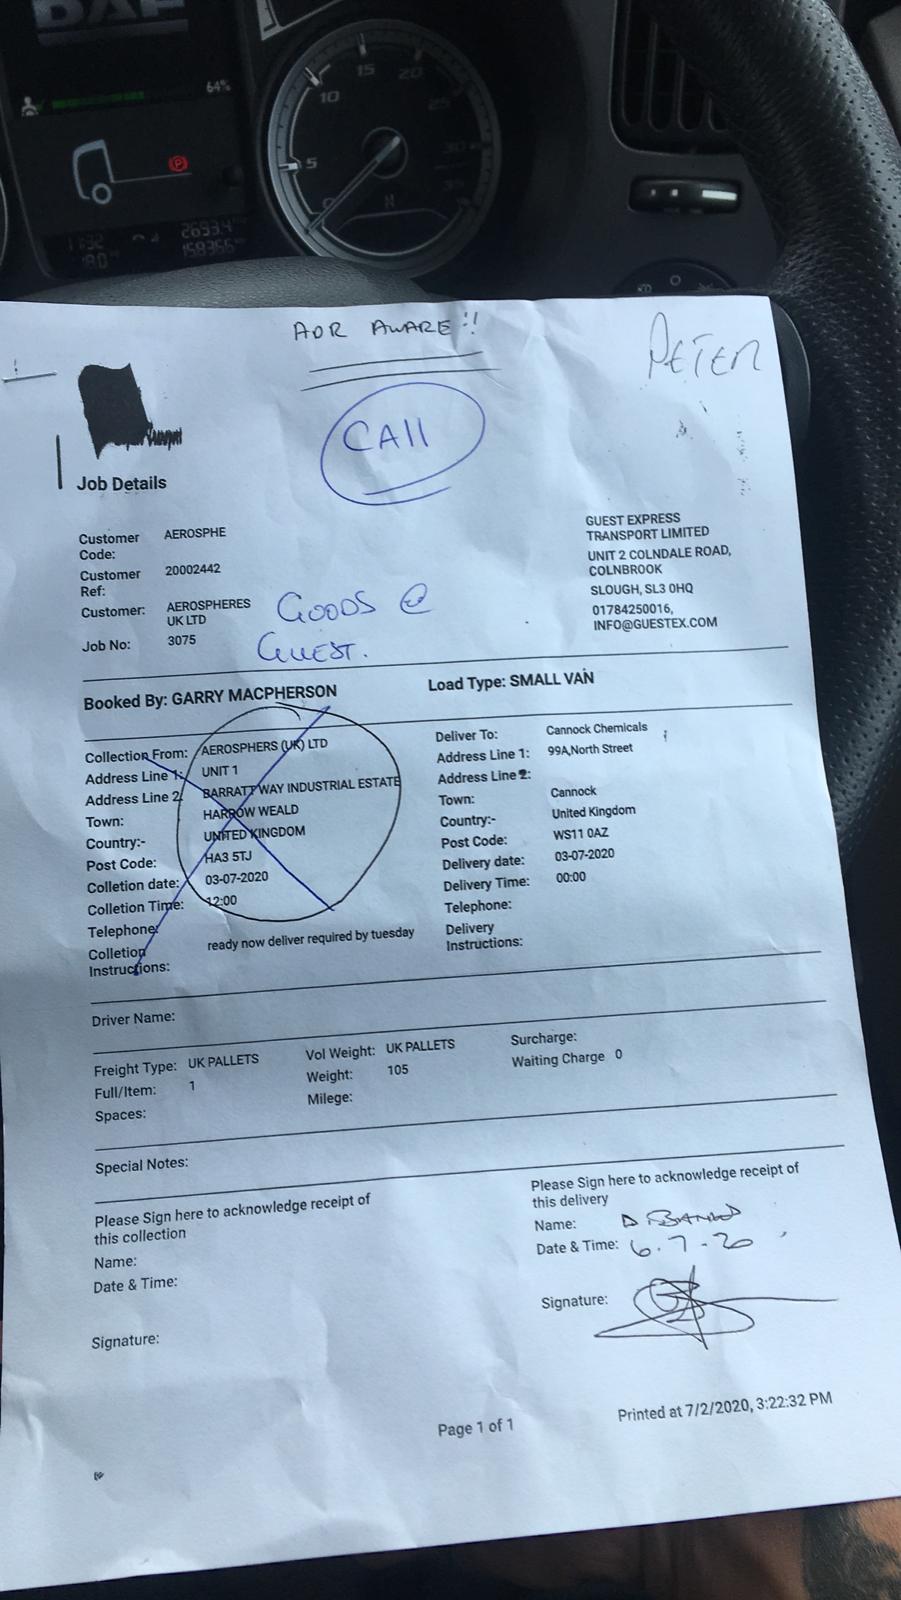 DAF
64%
15
10
20
25
5
30
0
N
11:32
2693.4
18.0
158355
ADR AWARE!!
PETER
CALL
Job Details
Customer Code: AEROSPHE
Customer Ref: 20002442
Customer: AEROSPHERES UK LTD
Job No: 3075
GOODS @
GUEST.
GUEST EXPRESS
TRANSPORT LIMITED
UNIT 2 COLNDALE ROAD,
COLNBROOK
SLOUGH, SL3 0HQ
01784250016,
INFO@GUESTEX.COM
Booked By: GARRY MACPHERSON
Load Type: SMALL VAN
Collection From: AEROSPHERS (UK) LTD
Address Line 1: UNIT 1
Address Line 2: BARRATT WAY INDUSTRIAL ESTATE
Town: HARROW WEALD
Country:- UNITED KINGDOM
Post Code: HA3 5TJ
Colletion date: 03-07-2020
Colletion Time: 12:00
Telephone:
Colletion Instructions: ready now deliver required by tuesday
Deliver To: Cannock Chemicals
Address Line 1: 99A,North Street
Address Line 2:
Town: Cannock
Country:- United Kingdom
Post Code: WS11 0AZ
Delivery date: 03-07-2020
Delivery Time: 00:00
Telephone:
Delivery Instructions:
Driver Name:
Freight Type: UK PALLETS
Full/Item: 1
Spaces:
Vol Weight: UK PALLETS
Weight: 105
Milege:
Surcharge:
Waiting Charge 0
Special Notes:
Please Sign here to acknowledge receipt of
this collection
Name:
Date & Time:
Signature:
Please Sign here to acknowledge receipt of
this delivery
Name: D
Date & Time: 6.7-20
Signature:
Page 1 of 1
Printed at 7/2/2020, 3:22:32 PM